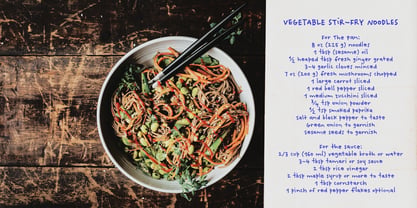 VEGETABLE STIR-FRY NOODLES
For the pan:
8 oz (225 g) noodles
1 tbsp (sesame) oil
½ heaped tbsp fresh ginger grated
3-4 garlic cloves minced
7 oz (200 g) fresh mushrooms chopped
1 large carrot sliced
1 red bell pepper sliced
1 medium zucchini sliced
¾ tsp onion powder
½ tsp smoked paprika
Salt and black pepper to taste
Green onion to garnish
Sesame seeds to garnish
For the sauce:
2/3 cup (160 ml) vegetable broth or water
3-4 tbsp tamari or soy sauce
2 tbsp rice vinegar
2 tbsp maple syrup or more to taste
1 tbsp cornstarch
1 pinch of red pepper flakes optional